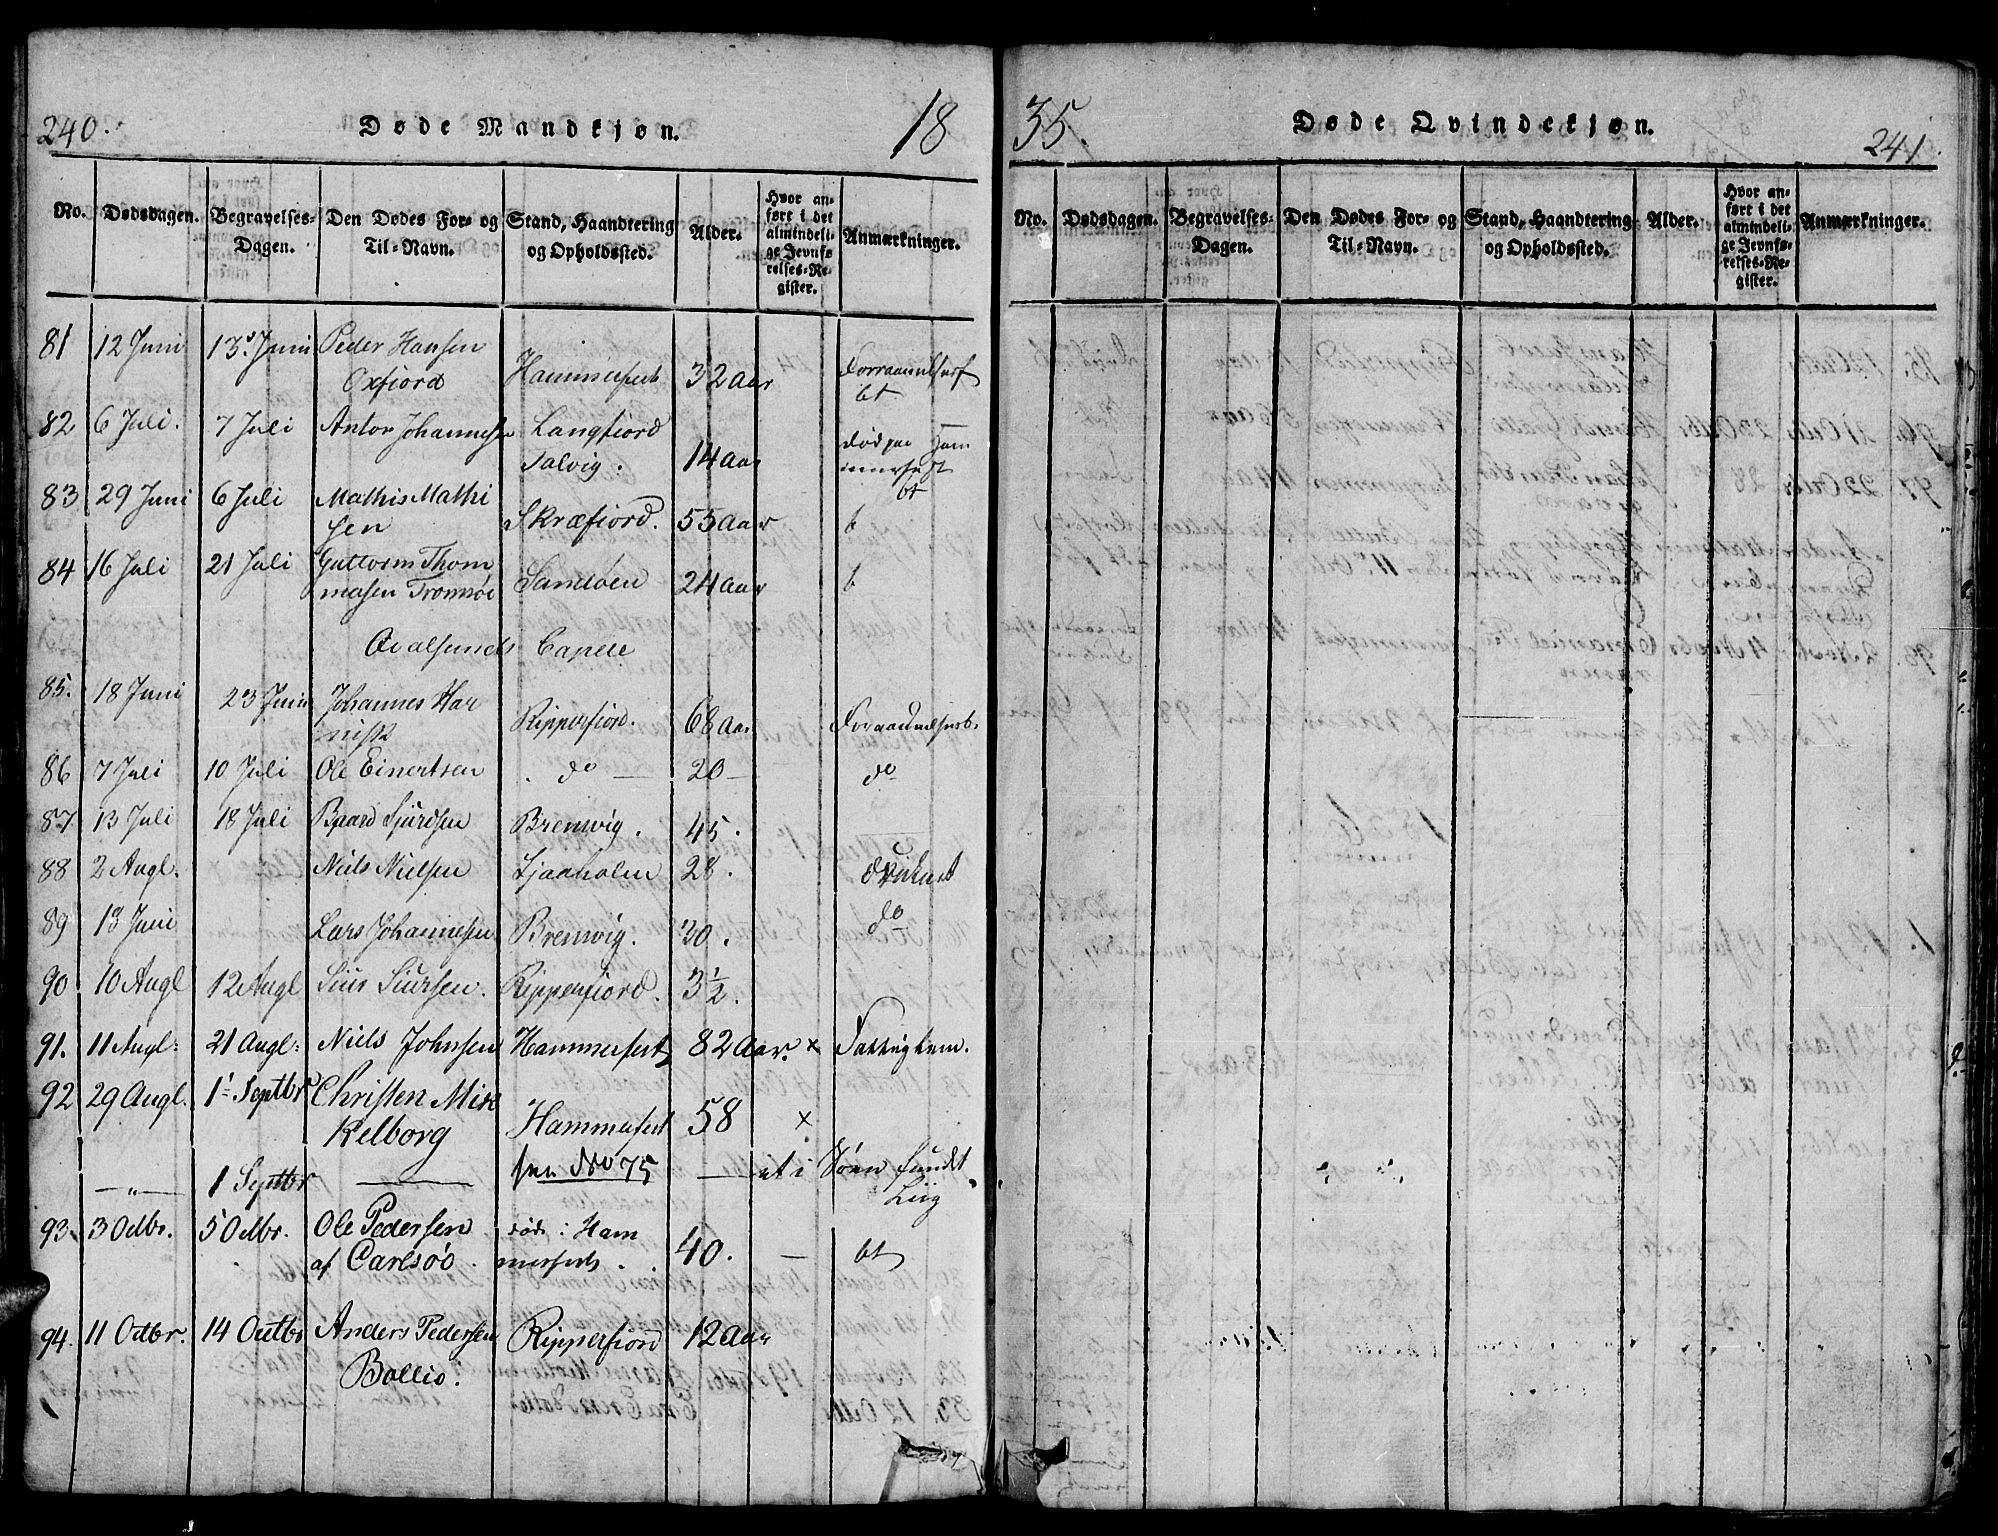 240.
Døde Mandkjøn.
18
No.
Dødsdagen.
Begravelses-
Dagen.
Den Dødes For- og
Til-Navn.
Stand, Haandtering
og Opholdssted.
Alder.
Hvor an-
ført i det
almindeli-
ge Jevnfø-
relses-Re-
gister.
Anmærkninger.
81 12 Juni 13. Juni Peder Hansen
Oxfiord Hammerfest 32 Aar
82 6 Juli. 7 Juli Anton Johannesen Langfiord
Talvig. 14 Aar død paa Ham
merfest
bt
83 29 Juni 6 Juli Mathis Mathi
sen Skræfiord. 55 Aar b
84 16 Juli 21 Juli Guttorm Thom
masen Tromsøe Sandøen 24 Aar b
Qvalsunds Capele
85. 18 Juni 23 Juni Johannes Har
Ripperfiord. 68 Aar
86 7 Juli 10 Juli Ole Einertsen do — 20 — do
87 13 Juli 18 Juli Baard Sjurdsen Brenvig. 45.
88 2 Augl. Niels Nielsen 28. Druknet
89 13 Juni Lars Johannesen Brenvig. 30. do
90 10 Augl 12 Augl Siur Siursen. Ripperfiord. 3 1/2.
91. 11 Augl: 21 Augl: Niels Johnsen Hammerfest 82 Aar. × Fattiglem.
92 29 Augl. 1 Septbr Christen Mix
Kelborg Hammerfest 58 ×
— „ — 1 Septbr — see No 75 — et i Søen fundet
Liig
93. 3 Octbr. 5 Octbr. Ole Pedersen
af Carlsøe død i Ham
merfest. 40. — bt
94. 11 Octbr. 14 Octbr Anders Pedersen
Bollio. Ripperfiord 12 Aar
35.
Døde Qvindekjøn.
241.
No.
Dødsdagen.
Begravelses-
Dagen.
Den Dødes For- og
Til-Navn.
Stand, Haandtering
og Opholdssted.
Alder.
Hvor an-
ført i det
almindeli-
ge Jevnfø-
relses-Re-
gister.
Anmærkninger.